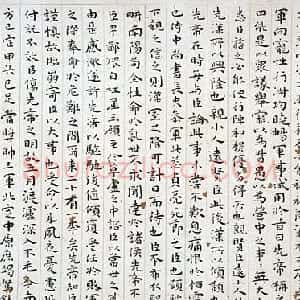 軍向寵性行均曉暢軍事試用於昔日先帝稱
曰能是以眾議舉寵為督愚以為營中之事
悉以咨之必能使行陣和穆優劣得所也親賢臣遠小人
先漢所以興隆也親小人遠賢臣此後漢所以傾頹也
先帝在時每與臣論此事未嘗不歎息痛恨於桓靈
也侍中尚書長史參軍此悉貞亮死節之臣也願陛
下親之信之則漢室之隆可計日而待也臣本布衣躬
耕南陽苟全性命於亂世不求聞達於諸侯先帝不
以臣卑鄙猥自枉屈三顧臣於草廬之中諮臣以當世之事
由是感激遂許先帝以驅馳後值傾覆受任於敗
軍之際奉命於危難之間爾來二十有一年矣先帝知臣
謹慎故臨崩寄臣以大事也受命以來夙夜憂慮恐
付託不效以傷先帝之明故五月渡瀘深入不毛今南
方已定甲兵已足當獎帥三軍北定中原庶竭駑